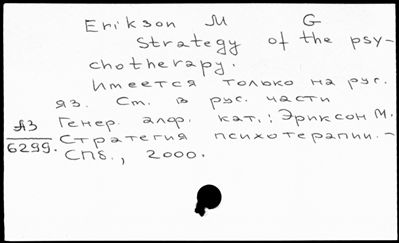 Erikson M G
Strategy of the psy-
chotherapy.
Имеется только на рус.
яз. См. в рус. части
Генер. алф. кат.: Эриксон М.
Стратегия психотерапии. -
СПб., 2000.
А3
6299.